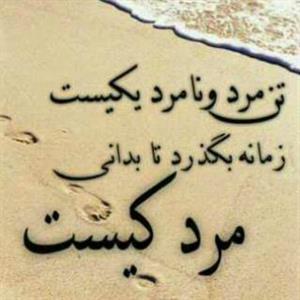 تن مرد و نامرد یکیست
زمانه بگذرد تا بدانی
مرد کیست